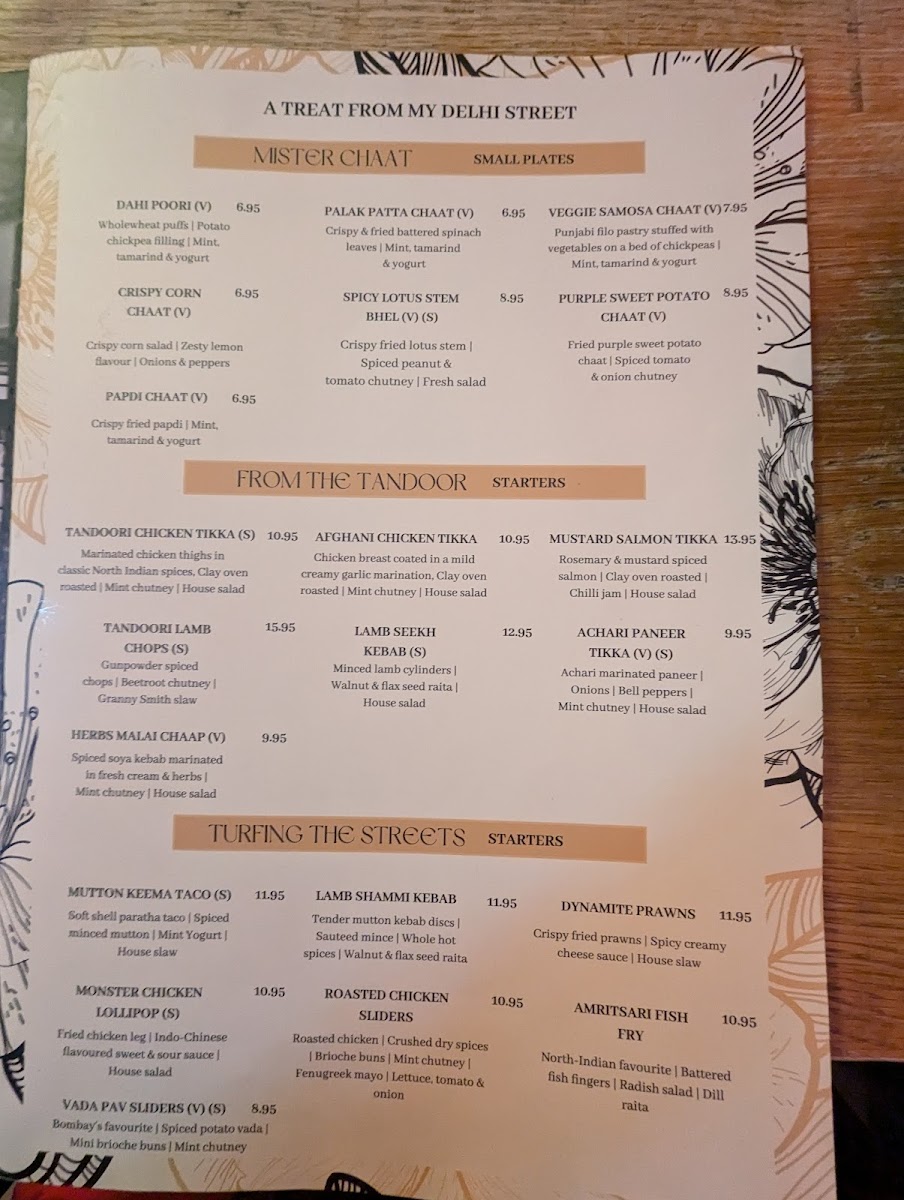 A TREAT FROM MY DELHI STREET
MISTER CHAAT SMALL PLATES
DAHI POORI (V) 6.95
Wholewheat puffs | Potato
chickpea filling | Mint,
tamarind & yogurt
PALAK PATTA CHAAT (V) 6.95
Crispy & fried battered spinach
leaves | Mint, tamarind
& yogurt
VEGGIE SAMOSA CHAAT (V) 7.95
Punjabi filo pastry stuffed with
vegetables on a bed of chickpeas |
Mint, tamarind & yogurt
CRISPY CORN 6.95
CHAAT (V)
Crispy corn salad | Zesty lemon
flavour | Onions & peppers
SPICY LOTUS STEM 8.95
BHEL (V) (S)
Crispy fried lotus stem |
Spiced peanut &
tomato chutney | Fresh salad
PURPLE SWEET POTATO 8.95
CHAAT (V)
Fried purple sweet potato
chaat | Spiced tomato
& onion chutney
PAPDI CHAAT (V) 6.95
Crispy fried papdi | Mint,
tamarind & yogurt
FROM THE TANDOOR STARTERS
TANDOORI CHICKEN TIKKA (S) 10.95
Marinated chicken thighs in
classic North Indian spices, Clay oven
roasted | Mint chutney | House salad
AFGHANI CHICKEN TIKKA 10.95
Chicken breast coated in a mild
creamy garlic marination, Clay oven
roasted | Mint chutney | House salad
MUSTARD SALMON TIKKA 13.95
Rosemary & mustard spiced
salmon | Clay oven roasted |
Chilli jam | House salad
TANDOORI LAMB 15.95
CHOPS (S)
Gunpowder spiced
chops | Beetroot chutney |
Granny Smith slaw
LAMB SEEKH 12.95
KEBAB (S)
Minced lamb cylinders |
Walnut & flax seed raita |
House salad
ACHARI PANEER 9.95
TIKKA (V) (S)
Achari marinated paneer |
Onions | Bell peppers |
Mint chutney | House salad
HERBS MALAI CHAAP (V) 9.95
Spiced soya kebab marinated
in fresh cream & herbs |
Mint chutney | House salad
TURFING THE STREETS STARTERS
MUTTON KEEMA TACO (S) 11.95
Soft shell paratha taco | Spiced
minced mutton | Mint Yogurt |
House slaw
LAMB SHAMMI KEBAB 11.95
Tender mutton kebab discs |
Sauteed mince | Whole hot
spices | Walnut & flax seed raita
DYNAMITE PRAWNS 11.95
Crispy fried prawns | Spicy creamy
cheese sauce | House slaw
MONSTER CHICKEN 10.95
LOLLIPOP (S)
Fried chicken leg | Indo-Chinese
flavoured sweet & sour sauce |
House salad
ROASTED CHICKEN 10.95
SLIDERS
Roasted chicken | Crushed dry spices
| Brioche buns | Mint chutney |
Fenugreek mayo | Lettuce, tomato &
onion
AMRITSARI FISH 10.95
FRY
North-Indian favourite | Battered
fish fingers | Radish salad | Dill
raita
VADA PAV SLIDERS (V) (S) 8.95
Bombay's favourite | Spiced potato vada |
Mini brioche buns | Mint chutney